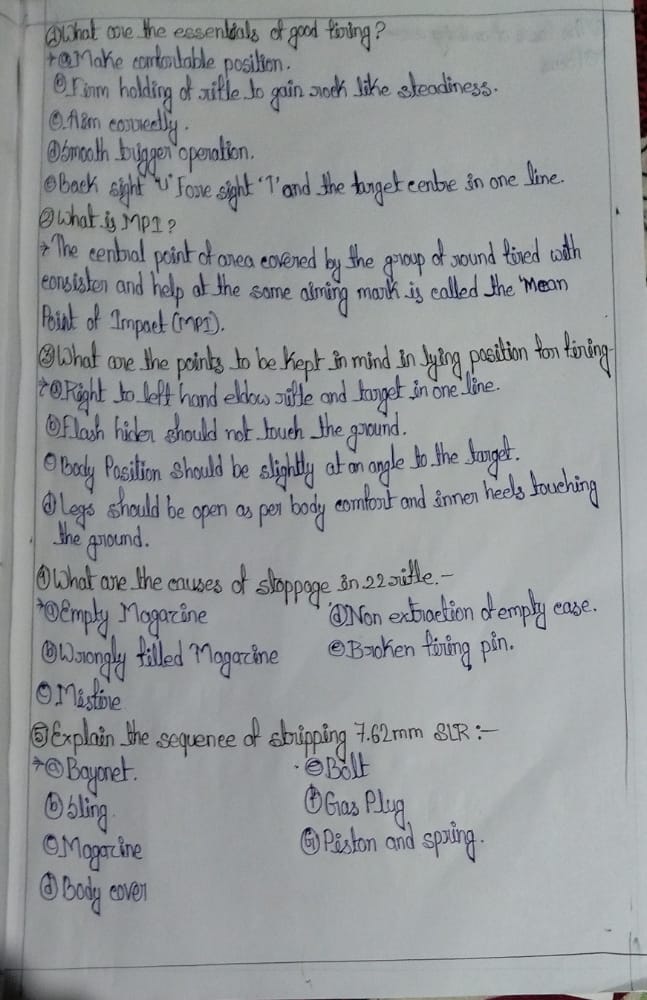 ① What are the essentials of good firing?
→ⓐ Make comfortable position.
ⓑ Firm holding of rifle to gain rock like steadiness.
ⓒ Aim correctly.
ⓓ Smooth trigger operation.
ⓔ Back sight 'U' Fore sight 'I' and the target centre in one line.
② What is MPI?
→ The central point of area covered by the group of round fired with
consisten and help at the same aiming mark is called the 'Mean
Point of Impact (MPI).
③ What are the points to be kept in mind in lying position for firing-
→ⓐ Right to left hand eldow rifle and target in one line.
ⓑ Flash hider should not touch the ground.
ⓒ Body Position should be slightly at an angle to the target.
ⓓ Legs should be open as per body comfort and inner heels touching
the ground.
④ What are the causes of stoppage in 22 rifle.-
→ⓐ Empty Magazine ⓓ Non extraction of empty case.
ⓑ Wrongly filled Magazine ⓔ Broken firing pin.
ⓒ Misfire
⑤ Explain the sequence of stripping 7.62mm SLR:-
→ⓐ Bayonet. ⓔ Bolt
ⓑ Sling. ⓕ Gas Plug
ⓒ Magazine Ⓖ Piston and spring.
ⓓ Body cover